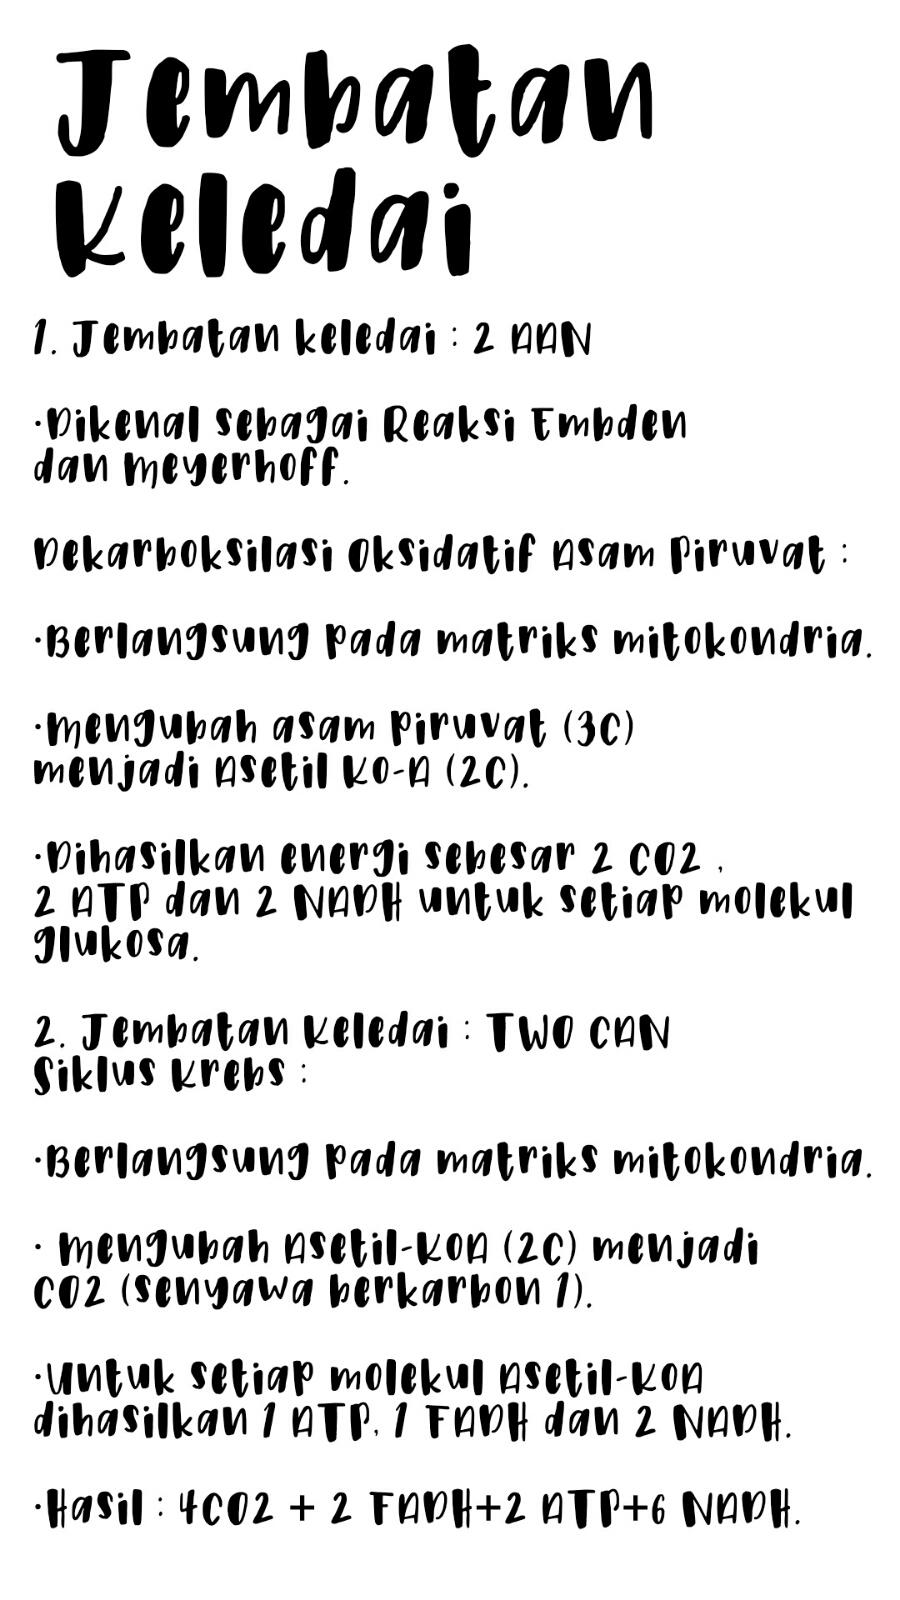 Jembatan
Keledai
1. Jembatan keledai : 2 AAN
·Dikenal sebagai Reaksi Embden
dan meyerhoff.
Dekarboksilasi Oksidatif Asam Piruvat :
·Berlangsung pada matriks mitokondria.
·mengubah asam piruvat (3C)
menjadi Asetil KO-A (2C).
·Dihasilkan energi sebesar 2 CO2 ,
2 ATP dan 2 NADH untuk setiap molekul
glukosa.
2. Jembatan Keledai : TWO CAN
Siklus Krebs :
·Berlangsung pada matriks mitokondria.
· mengubah Asetil-KOA (2C) menjadi
CO2 (senyawa berkarbon 1).
·Untuk setiap molekul Asetil-KOA
dihasilkan 1 ATP, 1 FADH dan 2 NADH.
·Hasil : 4CO2 + 2 FADH+2 ATP+6 NADH.